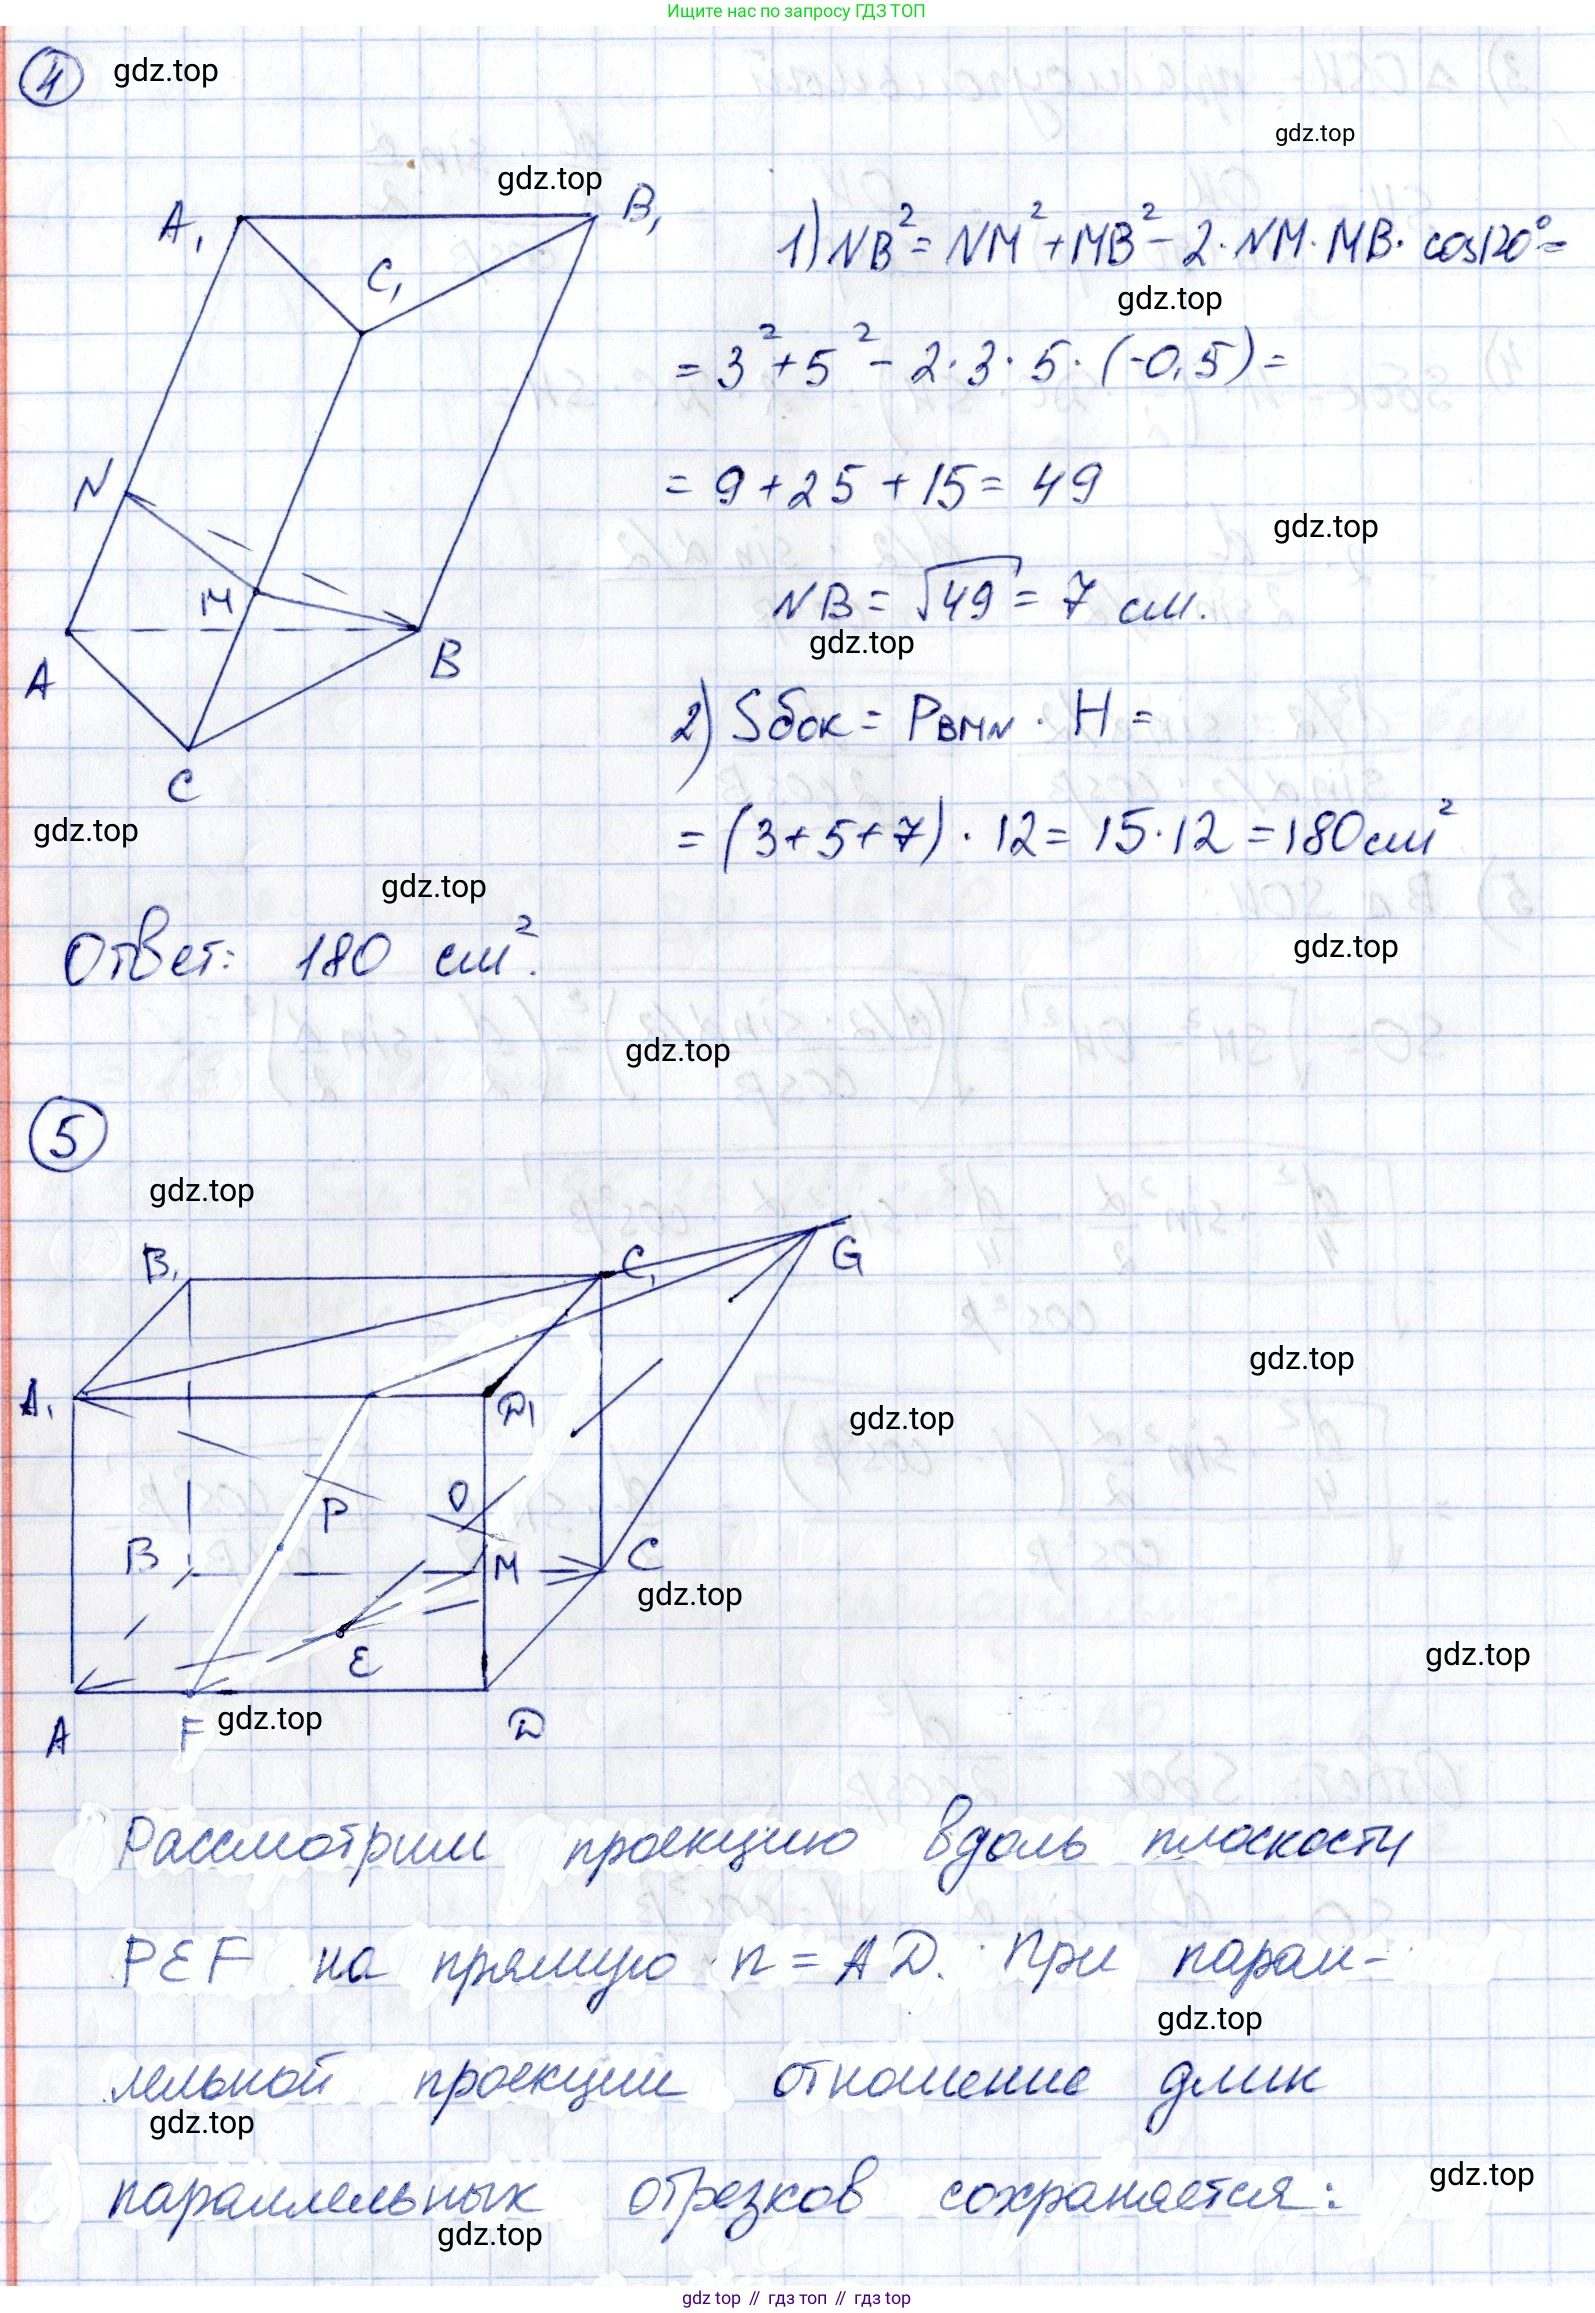 Ищите нас по запросу ГДЗ ТОП
4
gdz.top
gdz.top
gdz.top
A₁
B₁
C₁
1) NB² = NM² + MB² - 2·NM·MB·cos120° =
gdz.top
= 3² + 5² - 2·3·5·(-0,5) =
N
= 9 + 25 + 15 = 49
gdz.top
M
NB = √49 = 7 см.
gdz.top
A
B
2) Sбок = P BMN · H =
C
gdz.top
= (3+5+7)·12 = 15·12 = 180 см²
gdz.top
Ответ: 180 см².
gdz.top
gdz.top
5
gdz.top
B₁
C₁
G
gdz.top
A₁
D₁
gdz.top
P
O
B
M
C
gdz.top
E
gdz.top
A
F
gdz.top
D
Рассмотрим проекцию вдоль плоскости
PEF на прямую n = AD. При парал-
gdz.top
лельной проекции отношение длин
gdz.top
параллельных отрезков сохраняется:
gdz.top
gdz.top
gdz top // гдз топ // гдз top